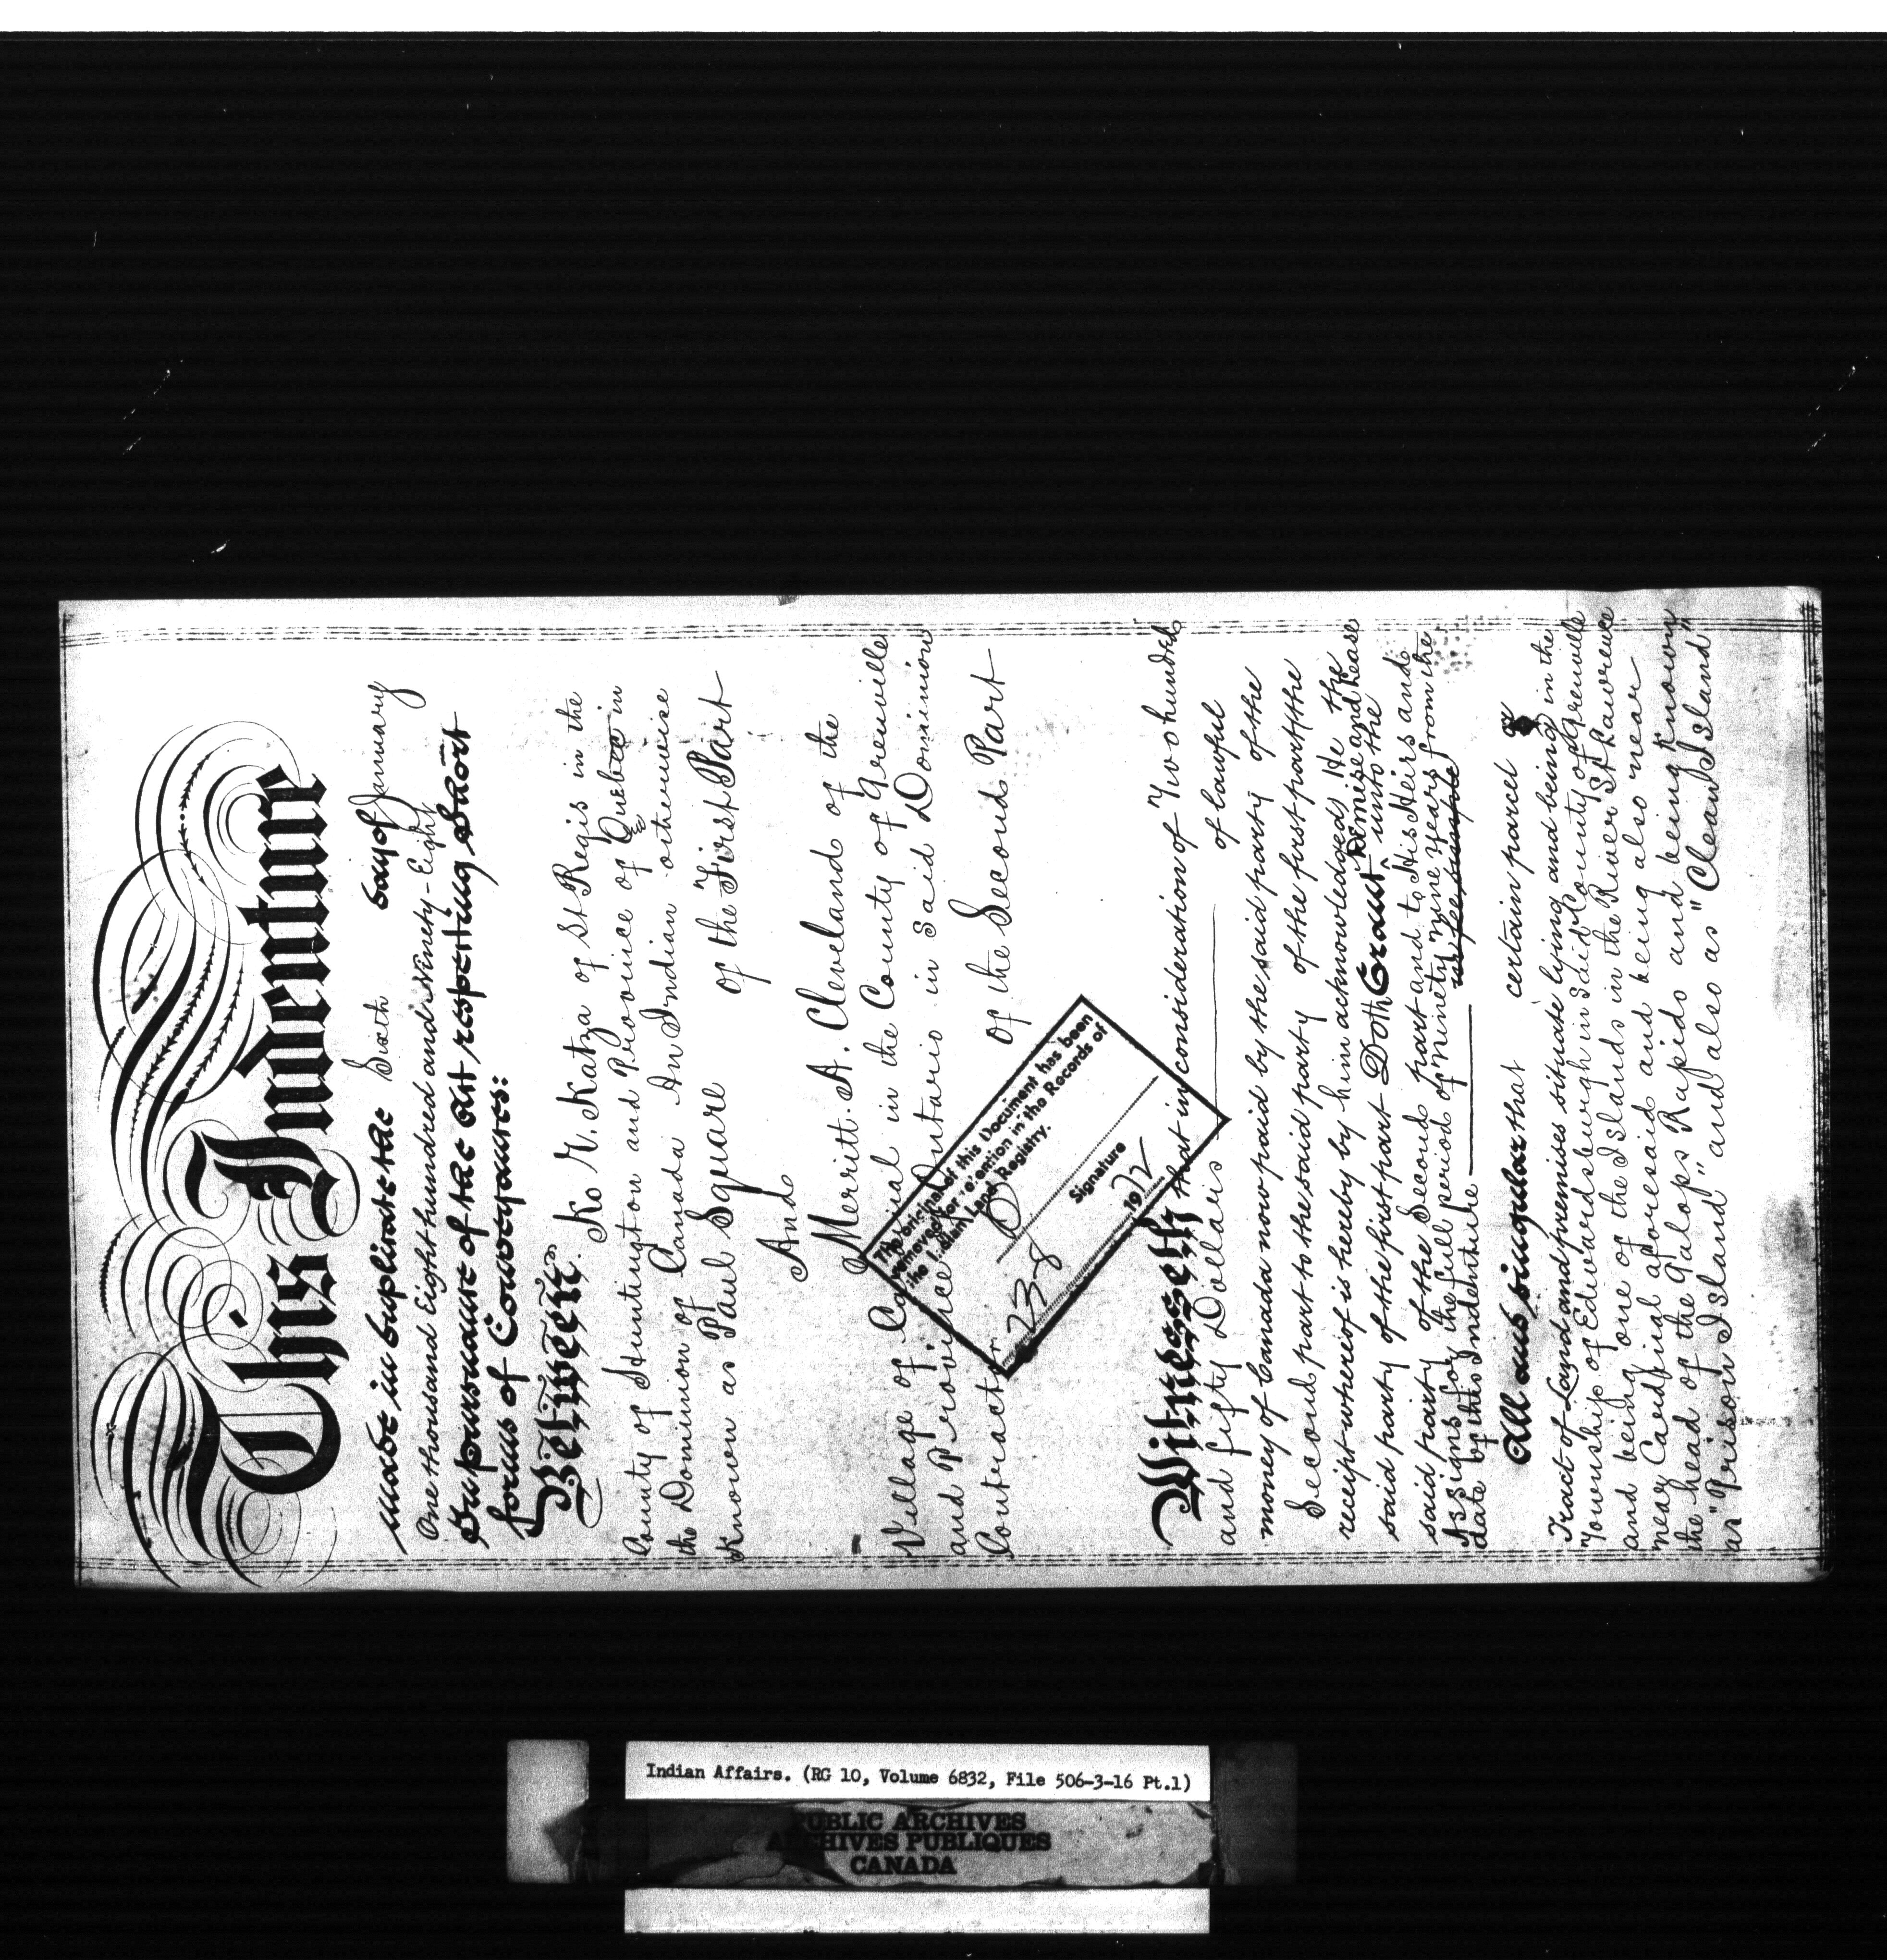 This Indenture
made in duplicate the Sixth day of January
One thousand Eight hundred and Ninety-Eight
In pursuance of the Act respecting Short
forms of Conveyances:
Between. Ko K. Katza of St Regis in the
County of Huntington and Province of Quebec in
the Dominion of Canada An Indian otherwise
Known as Paul Square of the First Part
And
Merritt. A. Cleveland of the
Village of Cardinal in the County of Grenville
and Province Ontario in Said Dominion
Contractor of the Second Part
The original of this Document has been
removed for retention in the Records of
the Indian Land Registry.
Signature
238
1972
Witnesseth that in consideration of Two hundred
and fifty Dollars of lawful
money of Canada now paid by the said party of the
Second part to the said party of the first part the
receipt whereof is hereby by him acknowledged, He the
said party of the first part Doth Grant Demise and Lease unto the
said party of the Second part and to His Heirs and
Assigns for the full period of Ninety Nine Years from the
date of this Indenture in fee simple
All and singular that certain parcel or
Tract of Land and premises situate lying and being in the
Township of Edwardsburgh in Said County of Grenville
and being one of the Islands in the River St Lawrence
near Cardinal aforesaid and being also near
the head of the Galops Rapids and being Known
as "Prison Island" and also as "Clean Island"
Indian Affairs. (RG 10, Volume 6832, File 506-3-16 Pt.1)
PUBLIC ARCHIVES
ARCHIVES PUBLIQUES
CANADA